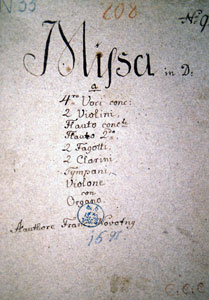 N 33 208 No 9
Missa in D:
a
4tro Voci conc:
2 Violini
Flauto conc:
Flauto 2do
2 Fagotti,
2 Clarini
Tympani,
Violone
con
Organo.
Authore Franc Novotny
C.C.C